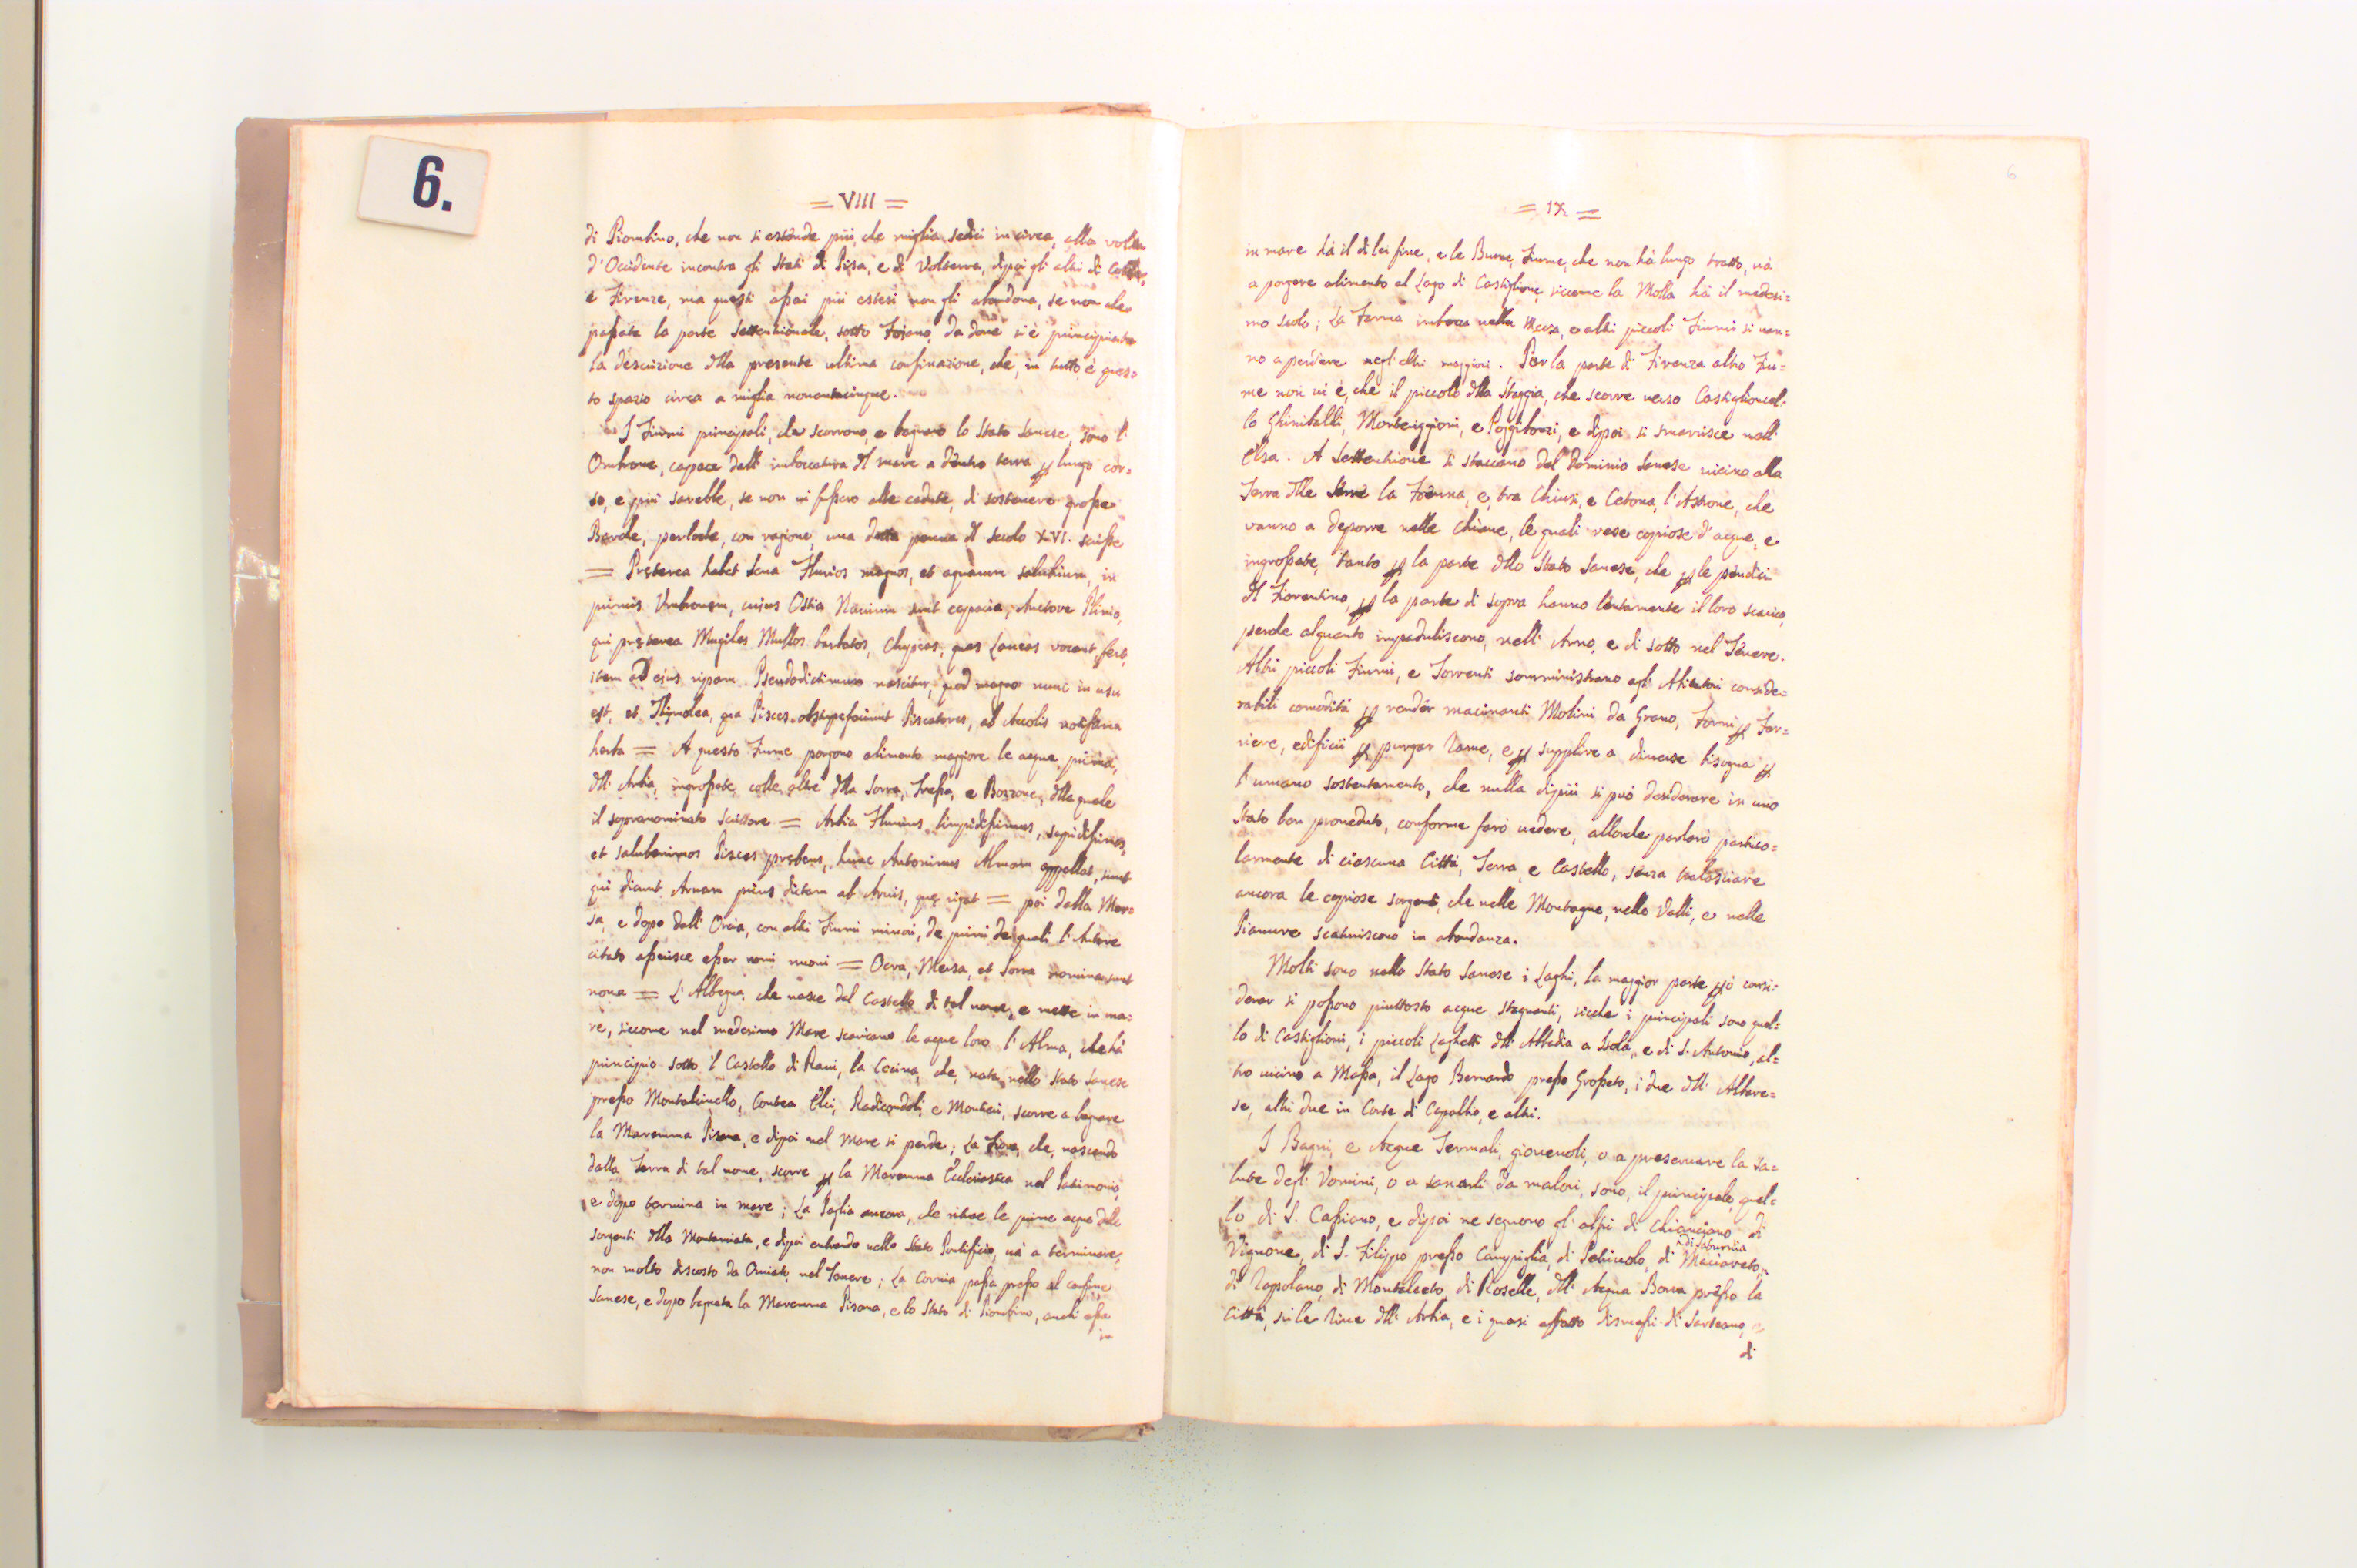 6.
= VIII =
di Piombino, che non si estende più, che miglia sedici in circa, alla volta
d'Occidente incontra gli Stati di Pisa, e di Volterra, dipoi gli altri di
e Firenze, ma questi assai più estesi non gli abandona, se non che
passata la parte Settentrionale, sotto Fojano, da dove si è principiata
la descrizione della presente ultima confinazione, che, in tutto, è ques=
to spazio circa a miglia novantacinque.
I Fiumi principali, che scorrono, e bagnano lo Stato Sanese, sono l'
Ombrone, capace dall' imboccatura del mare a dentro terra per lungo cor=
so, e più sarebbe, se non vi fossero alte cadute, di sostenere grosse
Barche, perloche, con ragione, una dotta penna del secolo XVI. scrisse
= Pręterea habet Sena Fluvios magnos, et aquarum salubrium, in
primis Umbronem, cujus Ostia Navium sunt capacia, Auctore Plinio,
qui pręterea Mugiles Mullos barbatos, Clupeas, quas Laucas vocant, fert,
item ad ejus ripam Pseudodictimum nascitur, quod magno nunc in usu
est, et Thymolea, qua Pisces obstupefaciunt Piscatores, ab Accolis notissima
herba = A questo Fiume porgono alimento maggiore le acque, prima,
dell' Arbia, ingrossate colle altre della Sorra, Tressa, e Bozzone, della quale
il sopranominato Scrittore = Arbia Fluvius limpidissimus, sapidissimos,
et saluberrimos Pisces prębens, hunc Antoninus Almam appellat, sunt
qui dicunt Arvam prius dictam ab Arvis, quę rigat = poi dalla Mer=
sa, e dopo dall' Orcia, con altri Fiumi minori, de primi de quali l'Autore
citato asserisce esser nomi nuovi = Orcia, Mersa, et Sorra nomina sunt
nova = L'Albegna, che nasce dal Castello di tal nome, e mette in ma=
re, siccome nel medesimo Mare scaricano le acque loro l'Alma, che hà
principio sotto il Castello di Ravi, la Cecina, che, nata nello Stato Sanese
presso Montalcinello, Contea Elci, Radicondoli, e Monticci, scorre a bagnare
la Maremma Pisana, e dipoi nel Mare si perde; La Fiora, che, nascendo
dalla Terra di tal nome, scorre per la Maremma Ecclesiastica nel Patrimonio,
e dopo termina in mare; La Paglia ancora, che riceve le prime acque dalle
sorgenti della Montamiata, e dipoi entrando nello Stato Pontificio, và a terminare,
non molto discosto da Orvieto, nel Tevere; La Cornia passa presso al confine
Sanese, e dopo bagnata la Maremma Pisana, e lo Stato di Piombino, anch' essa
in
6
= IX =
in mare hà il di lei fine, e le Bruna, Fiume, che non hà lungo tratto, và
a porgere alimento al Lago di Castiglione, siccome la Molla hà il medesi=
mo scolo; La Farma imbocca nella Mersa, e altri piccoli Fiumi si van=
no a perdere negl' altri maggiori. Per la parte di Firenze altro Fiu=
me non vi è, che il piccolo della Staggia, che scorre verso Castiglioncel=
lo Ghinibaldi, Monteriggioni, e Poggibonzi, e dipoi si smarrisce nell'
Elsa. A Settentrione si staccano dal Dominio Sanese vicino alla
Terra delle Serre la Foenna, e, tra Chiusi, e Cetona, l'Astrone, che
vanno a deporre nelle Chiane, le quali rese copiose d'acque, e
ingrossate, tanto per la parte dello Stato Sanese, che per le pendici
del Fiorentino, per la parte di sopra hanno lentamente il loro scarico,
perche alquanto impaduliscono, nell' Arno, e di sotto nel Tevere.
Altri piccoli Fiumi, e Torrenti somministrano agl' Abitatori conside=
rabili comodità per render macinanti Molini da Grano, Forni per Fer=
riere, edificii per purgar Rame, e per supplire a diverse bisogna per
l'umano sostentamento, che nulla dipiù si può desiderare in uno
Stato ben proveduto, conforme farò vedere, allorche parlerò partico=
larmente di ciascuna Città, Terra, e Castello, senza tralasciare
ancora le copiose sorgenti, che nelle Montagne, nelle Valli, e nelle
Pianure scaturiscono in abondanza.
Molti sono nello Stato Sanese i Laghi, la maggior parte però consi=
derar si possono piuttosto acque stagnanti, sicche i principali sono quel=
lo di Castiglioni, i piccoli Laghetti dell' Abbadia a Isola, e di S. Antonio, al=
tro vicino a Massa, il Lago Bernardo presso Grosseto, i due dell' Alberese=
se, altri due in Corte di Capalbio, e altri.
I Bagni, e Acque Termali, giovevoli, o a preservare la sa=
lute degl' Uomini, o a sanarli da malori, sono, il principale, quel=
lo di S. Cassiano, e dipoi ne seguono gl' altri di Chianciano, di
Vignone, di S. Filippo presso Campiglia, di Petriuolo, di Macereto,
di Saturnia
di Rapolano, di Montalceto, di Roselle, dell' Acqua Borra presso la
Città, sule Rive dell' Arbia, e i quasi affatto dismessi di Sarteano,
di